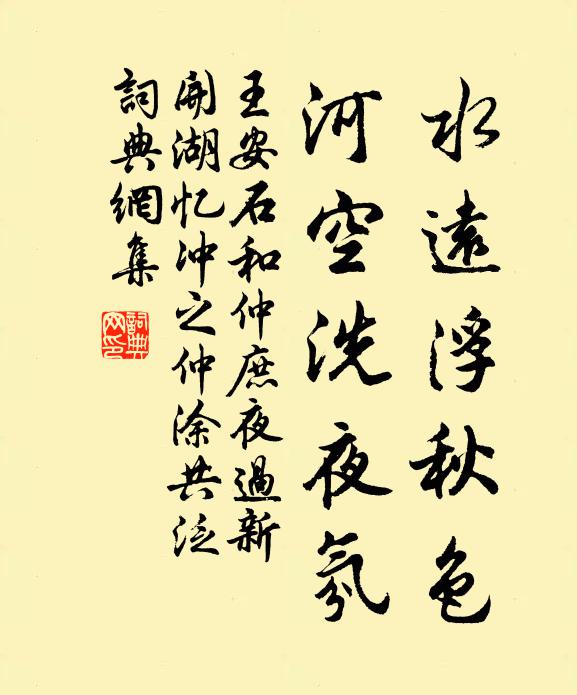 水遠浮秋色
河空洗夜氛
王安石和仲庶夜過新
開湖忆冲之仲涂共泛
詞典網集
詞典網印